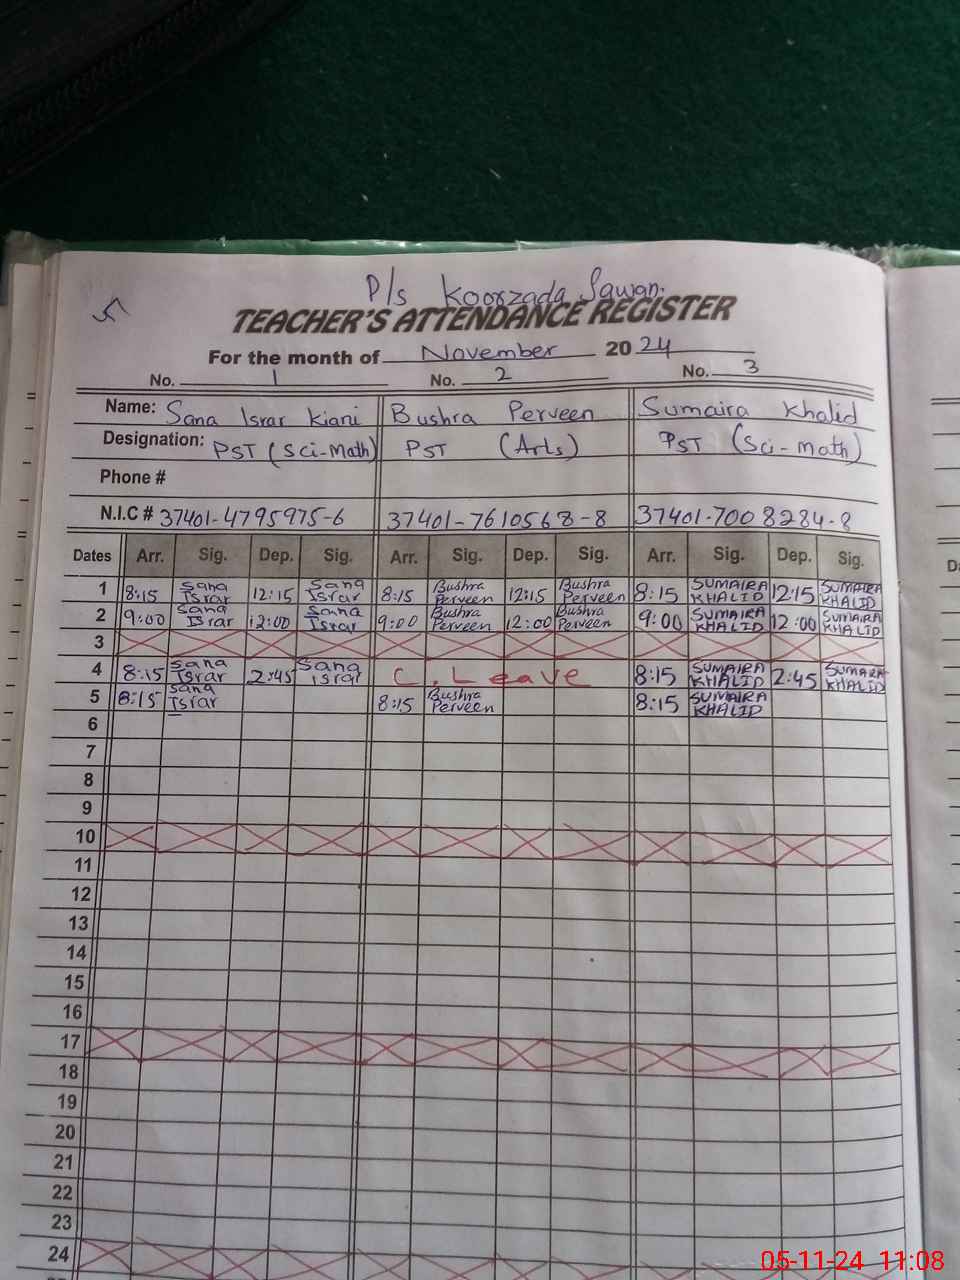 P/s Koorzada Sawan.
TEACHER'S ATTENDANCE REGISTER
For the month of November 2024
No. 1 No. 2 No. 3
Name: Sana Israr Kiani Bushra Perveen Sumaira Khalid
Designation: PST (Sci-Math) PST (Arts) PST (Sci-math)
Phone #
N.I.C # 37401-4795975-6 37401-7610568-8 37401-7008284-8
Dates Arr. Sig. Dep. Sig. Arr. Sig. Dep. Sig. Arr. Sig. Dep. Sig.
1 8:15 Sana Israr 12:15 Sana Israr 8:15 Bushra Perveen 12:15 Bushra Perveen 8:15 SUMAIRA KHALID 12:15 SUMAIRA KHALID
2 9:00 Sana Israr 12:00 Sana Israr 9:00 Bushra Perveen 12:00 Bushra Perveen 9:00 SUMAIRA KHALID 12:00 SUMAIRA KHALID
3
4 8:15 Sana Israr 2:45 Sana Israr C. Leave 8:15 SUMAIRA KHALID 2:45 SUMAIRA KHALID
5 8:15 Sana Israr 8:15 Bushra Perveen 8:15 SUMAIRA KHALID
6
7
8
9
10
11
12
13
14
15
16
17
18
19
20
21
22
23
24
05-11-24 11:08